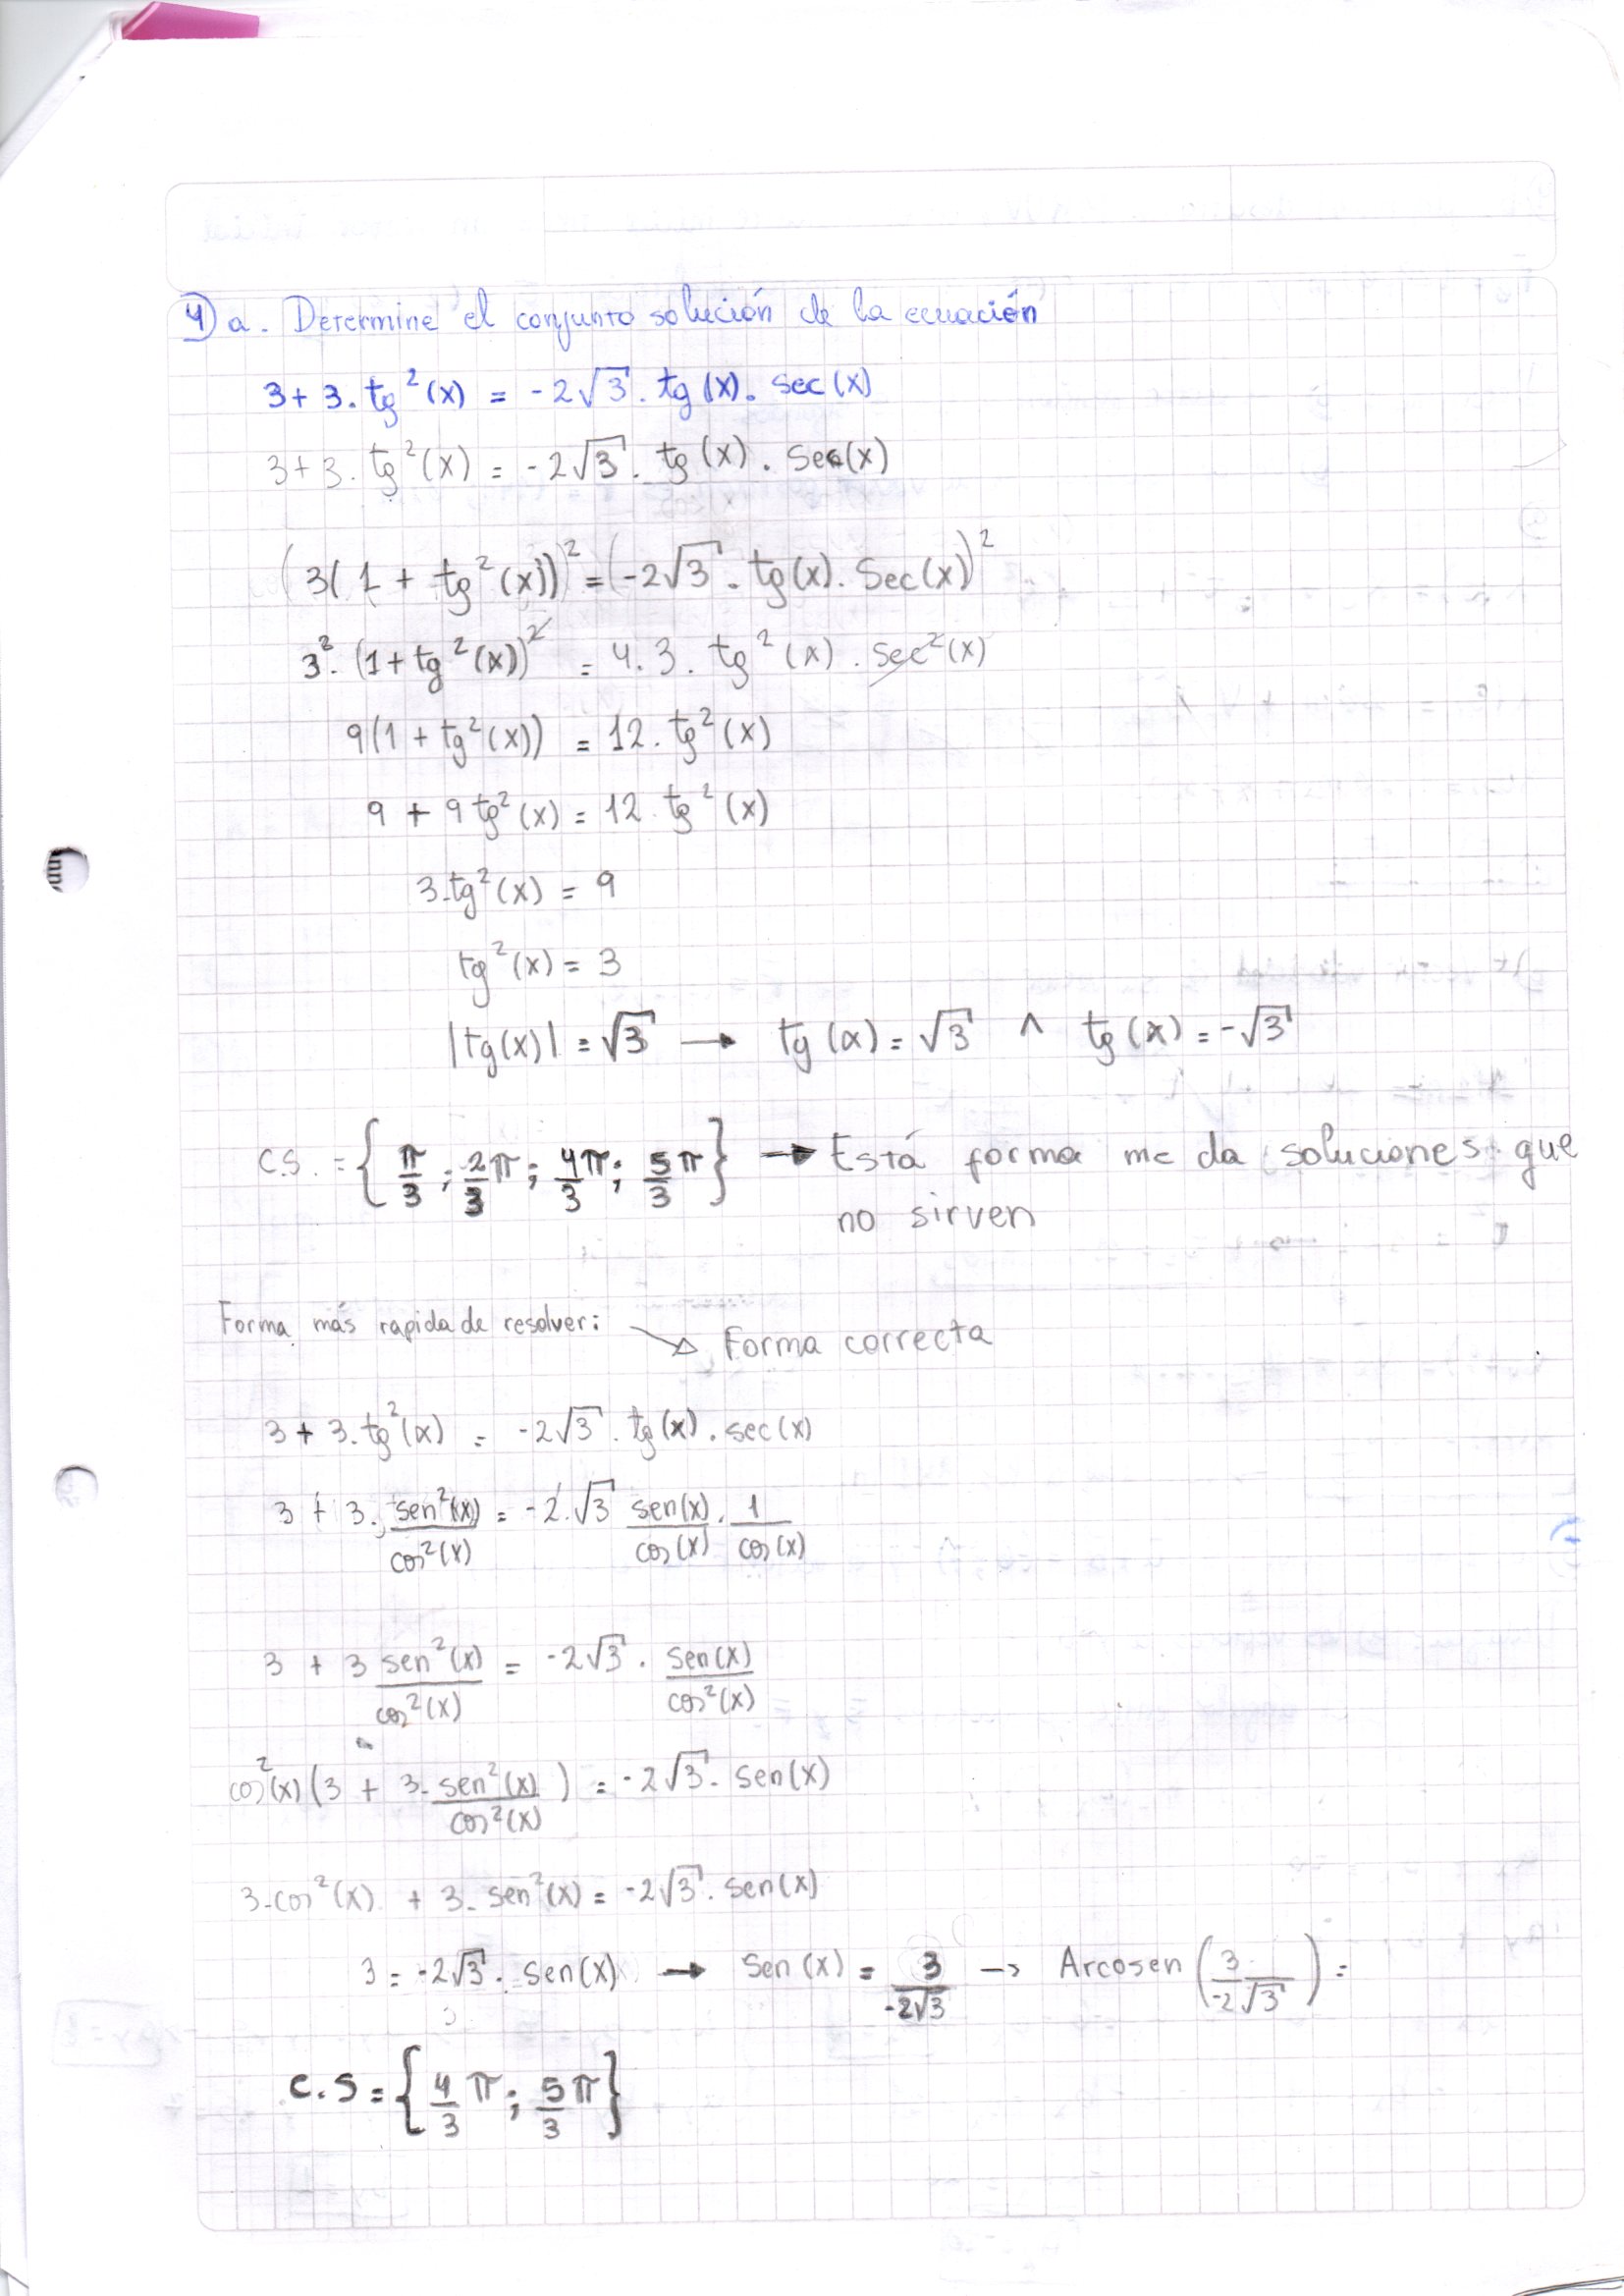 4) a. Determine el conjunto solución de la ecuación
3 + 3. tg²(x) = -2√3. tg(x). sec(x)
3 + 3. tg²(x) = -2√3. tg(x). Sec(x)
(3(1 + tg²(x)))² = (-2√3. tg(x). Sec(x))²
3². (1 + tg²(x))² = 4.3. tg²(x). sec²(x)
9(1 + tg²(x)) = 12. tg²(x)
9 + 9 tg²(x) = 12. tg²(x)
3.tg²(x) = 9
tg²(x) = 3
|tg(x)| = √3 → tg(x) = √3 ∧ tg(x) = -√3
C.S. = {π/3 ; 2/3 π ; 4/3 π ; 5/3 π} → Está forma me da soluciones que
no sirven
Forma más rapida de resolver: → Forma correcta
3 + 3. tg²(x) = -2√3. tg(x). sec(x)
3 + 3. sen²(x)/cos²(x) = -2.√3 sen(x)/cos(x) . 1/cos(x)
3 + 3 sen²(x)/cos²(x) = -2√3. sen(x)/cos²(x)
cos²(x)(3 + 3. sen²(x)/cos²(x)) = -2√3. sen(x)
3.cos²(x) + 3. sen²(x) = -2√3. sen(x)
3 = -2√3. sen(x) → Sen(x) = 3/-2√3 → Arcosen(3/-2√3) =
C.S = {4/3 π ; 5/3 π}